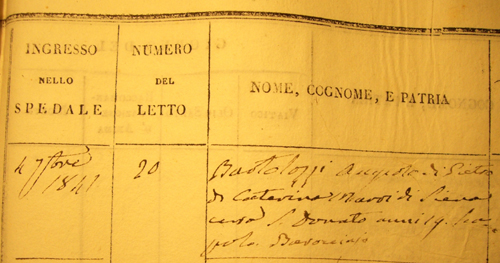 INGRESSO
NELLO
SPEDALE
NUMERO
DEL
LETTO
NOME, COGNOME, E PATRIA
4 7bre
1841
20
Bartolozzi Angelo di Pietro
di Caterina di Siena
cura S. Donato anni 19.